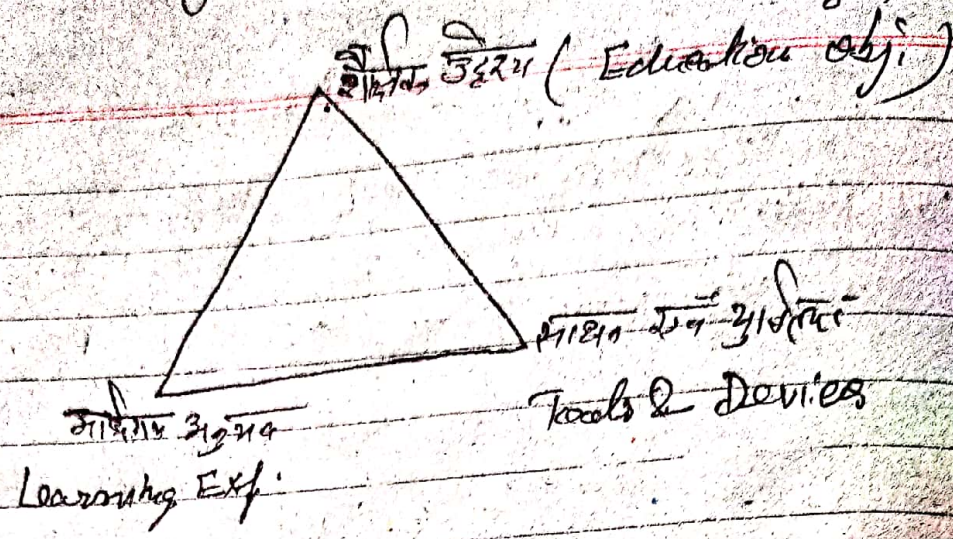 शैक्षिक उद्देश्य ( Education obj. )
साधन एवं युक्तियां
Tools & Devies
अधिगम अनुभव
Learning Exp.